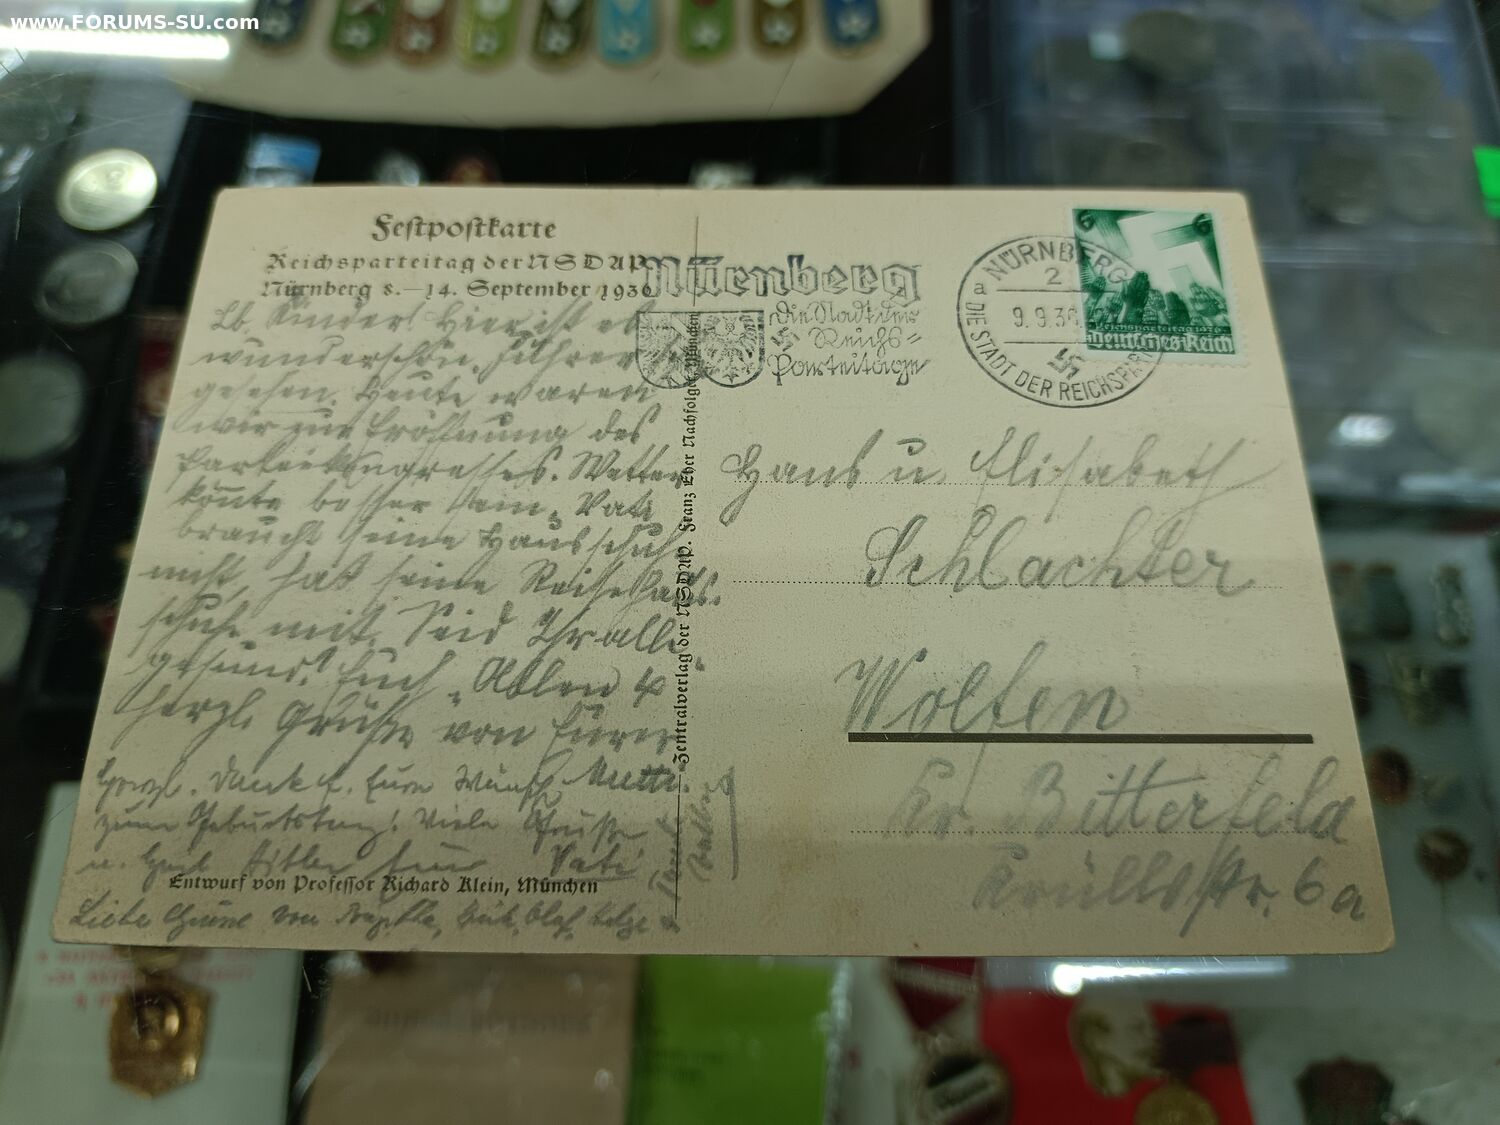 www.FORUMS-SU.com
Festpostkarte
Reichsparteitag der NSDAP
Nürnberg 8.–14. September 1936
Nürnberg
die Stadt der
Reichs=
parteitage
NÜRNBERG
2
a
9.9.36
DIE STADT DER REICHSPAR
6 6
Reichsparteitag 1936
Deutsches Reich
Lb. Kinder! Hier ist es
wunderschön. Führer
gesehen. Heute waren
wir zur Eröffnung des
Parteikongresses. Wetter
könnte besser sein. Vati
braucht seine Hausschuh
nicht, hat seine Reisehaus-
schuhe mit. Seid Ihr alle
gesund? Euch Allen
herzl. Grüße von Eurer
Mutti.
Herzl. Dank f. Eure Wünsche
zum Geburtstag! Viele Grüße
u. Heil Hitler Euer Vati
Entwurf von Professor Richard Klein, München
Liebe Grüße von
Zentralverlag der NSDAP. Franz Eher Nachfolger, München
Hans u. Elisabeth
Schlachter
Wolfen
Kr. Bitterfeld
6a